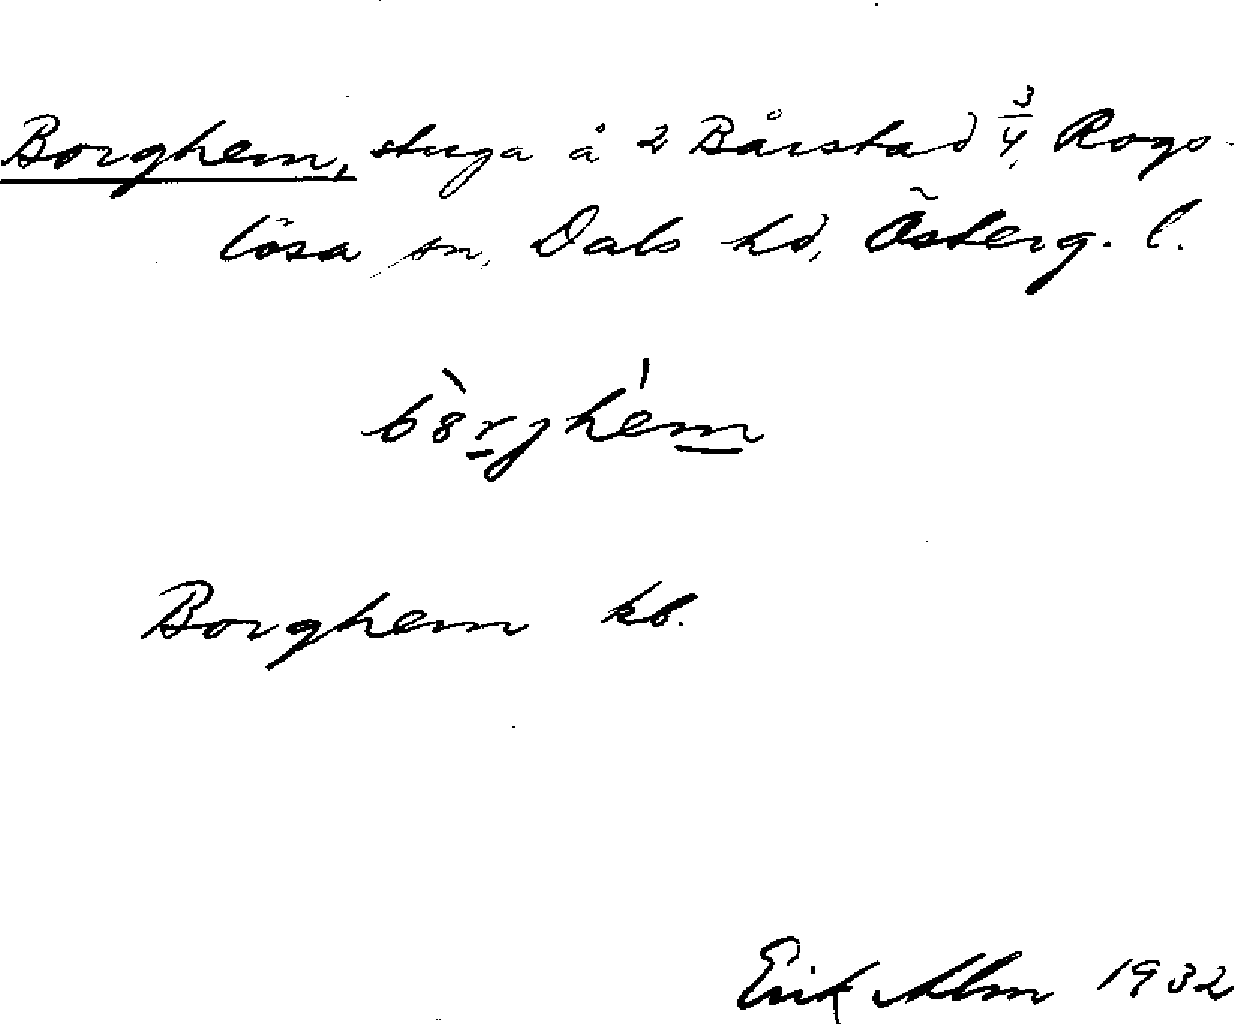 Borghem, stuga å 2 Bårstad 3/4, Rogs-
lösa sn, Dals hd, Österg. l.
Borghem kb.
Erik Alm 1932